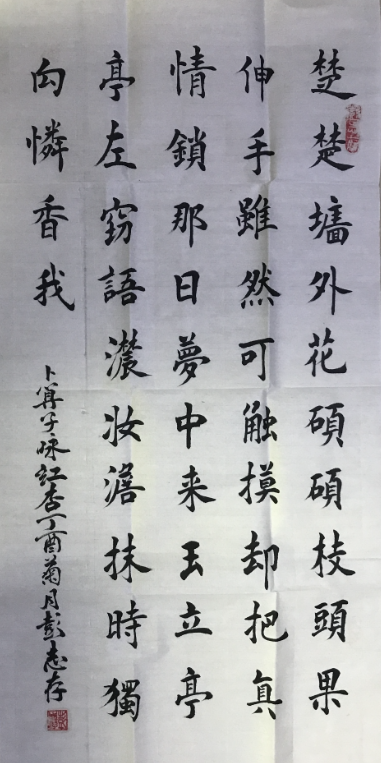 楚楚墙外花碩碩枝頭果
伸手雖然可触摸却把真
情鎖那日夢中来玉立亭
亭左窈語濃妆澹抹時獨
向憐香我
卜算子咏红杏丁酉菊月彭志存